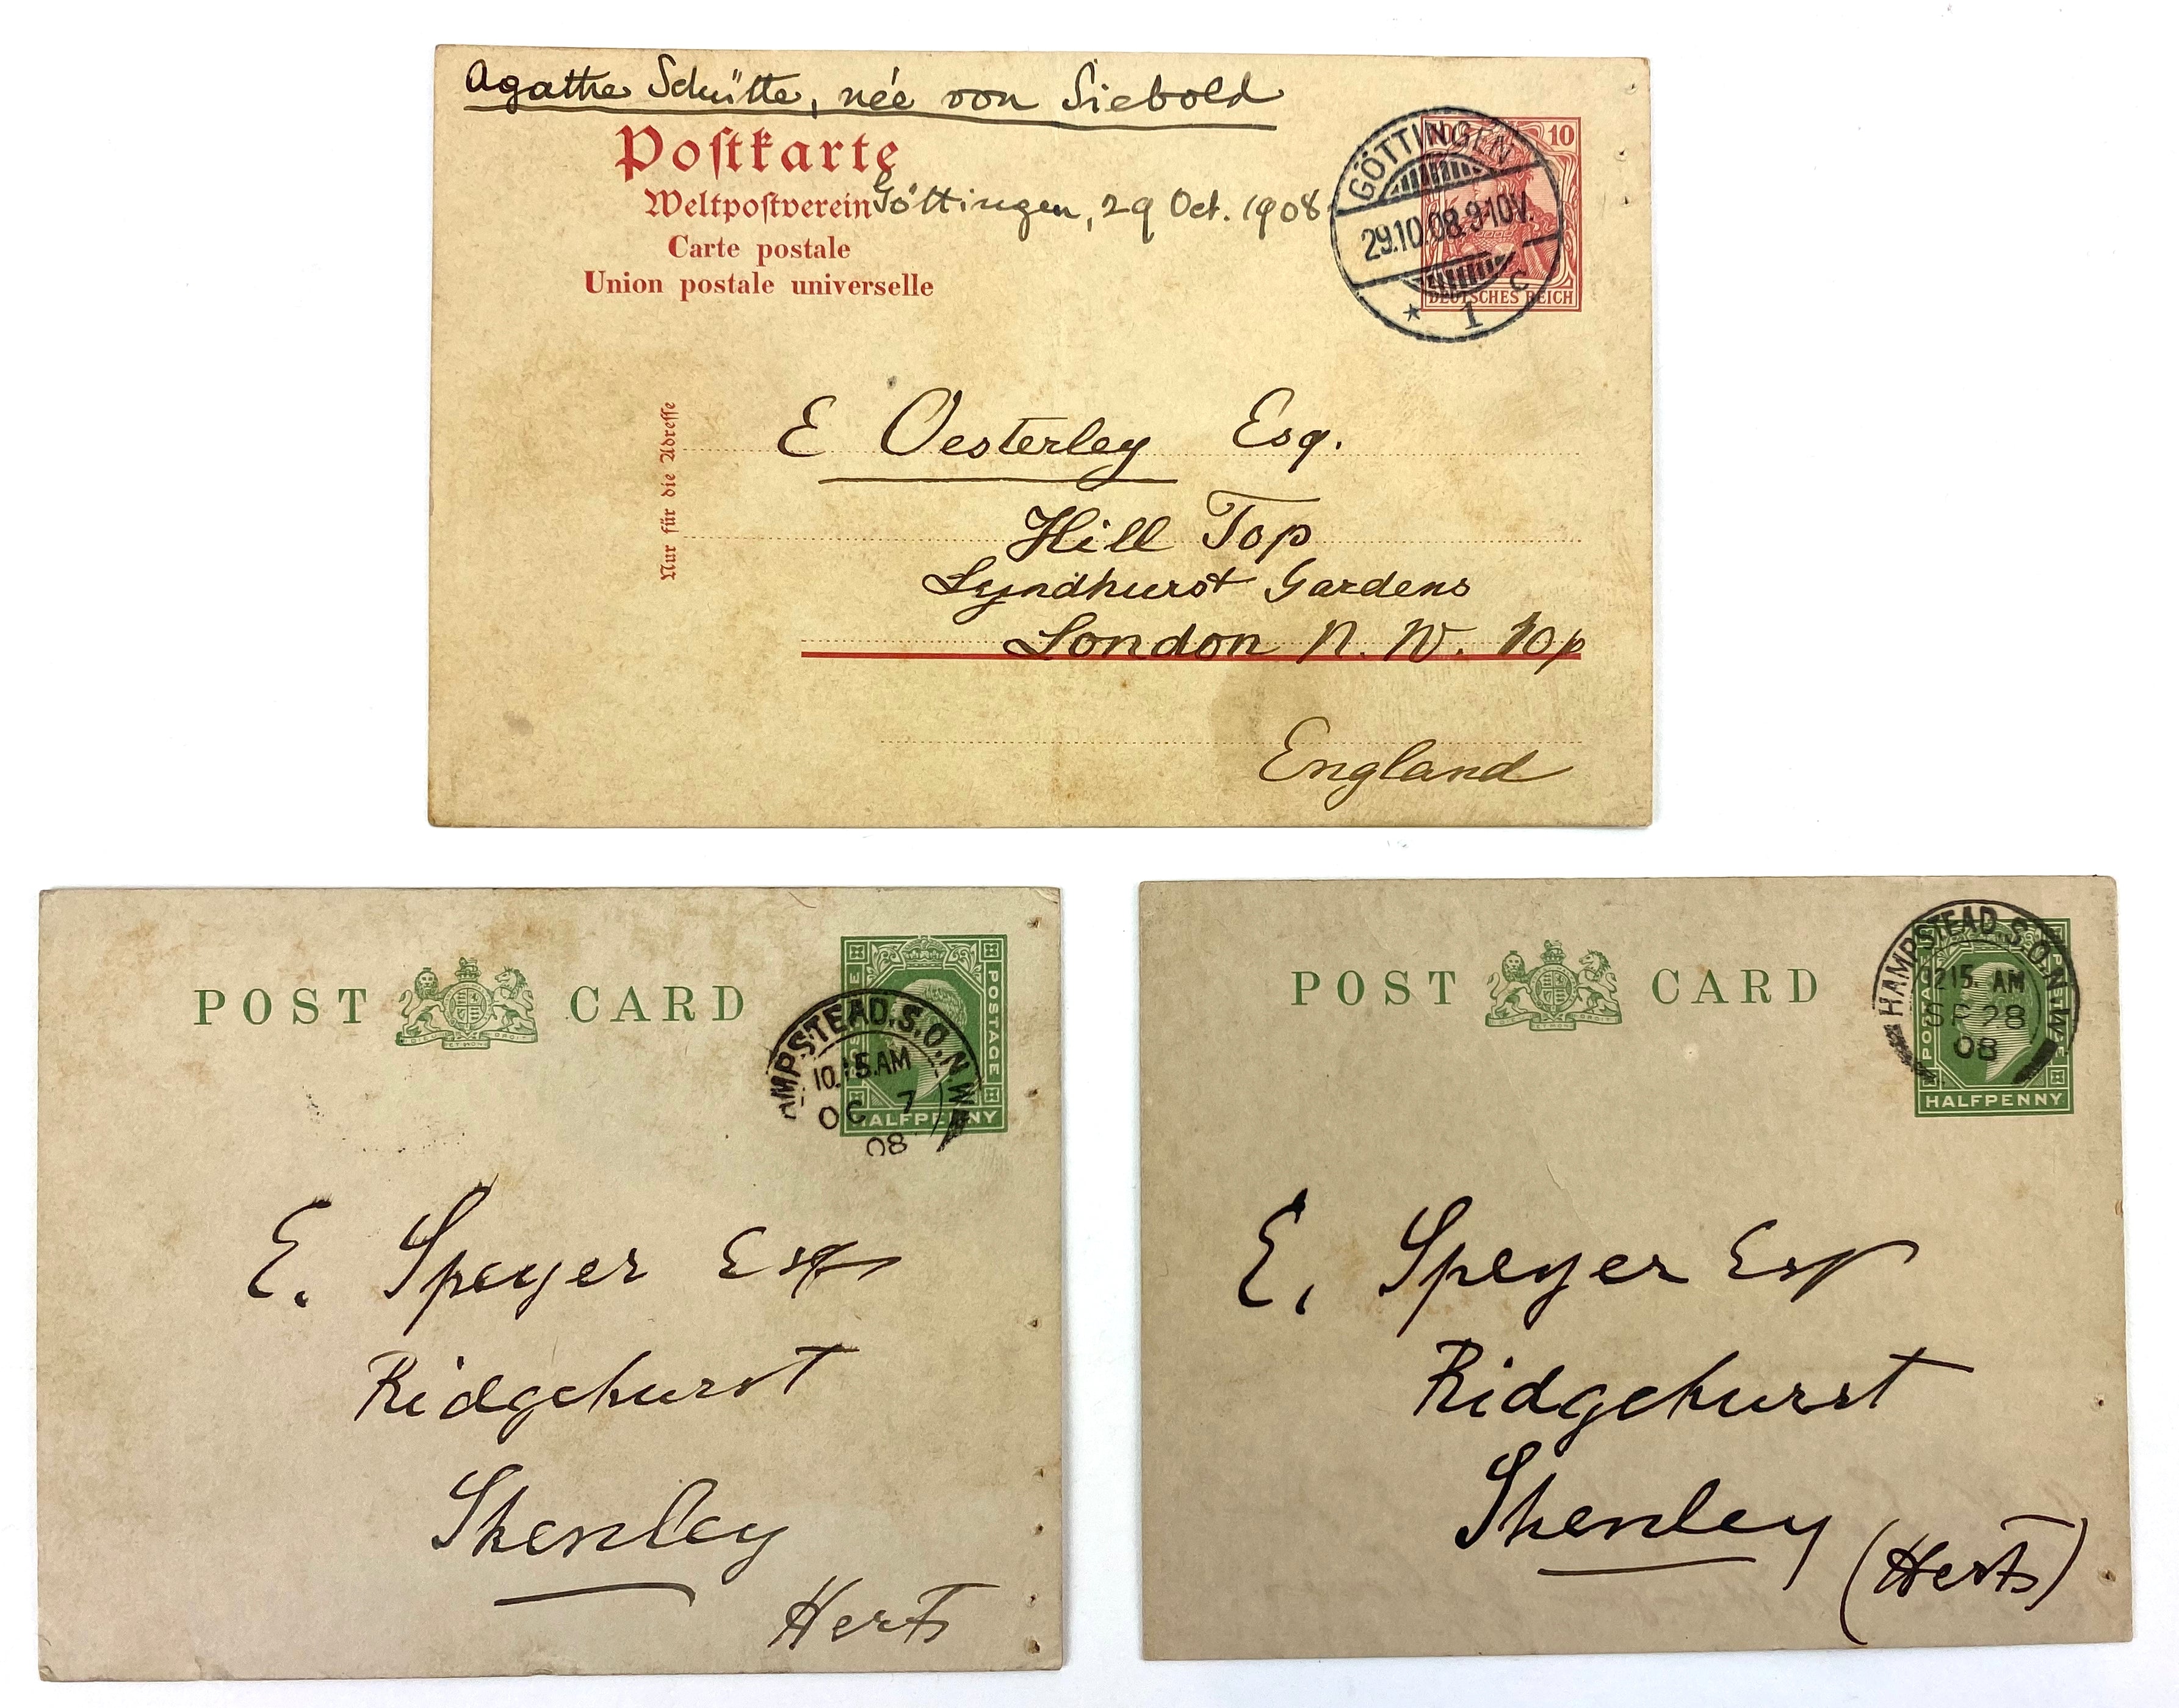 Agathe Schütte, née von Siebold
Postkarte
Weltpostverein
Göttingen, 29 Oct. 1908
Carte postale
Union postale universelle
GÖTTINGEN
29.10.08.9-10V.
* 1 c
10
DEUTSCHES REICH
Nur für die Adresse
E Oesterley Esq.
Hill Top
Lyndhurst Gardens
London N. W.
England
POST CARD
POSTAGE
HALFPENNY
AMPSTEAD.S.O.N.W
10.15.AM
OC 7
08
E. Speyer Esq
Ridgehurst
Shenley
Herts
POST CARD
POSTAGE
HALFPENNY
HAMPSTEAD S.O.N.W.
1215. AM
SP 28
08
E. Speyer Esq
Ridgehurst
Shenley
(Herts)